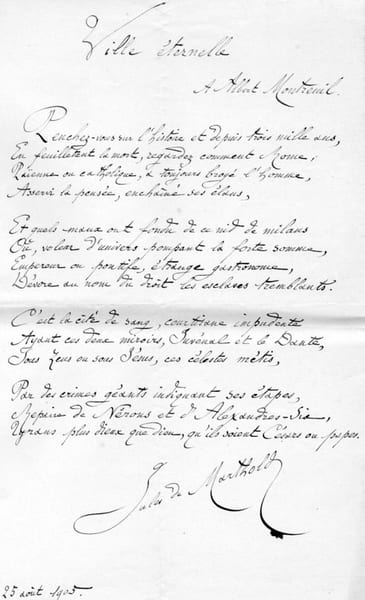 Ville éternelle
A Albert Montreuil.
Penchez-vous sur l'histoire et depuis trois mille ans,
En feuilletant la mort, regardez comment Rome,
Païenne ou catholique, a toujours broyé l'homme,
Asservi la pensée, enchaîné ses élans,
Et quels maux ont fondu de ce nid de milans
Où, voleur d'univers pompant la forte somme,
Empereur ou pontife, étrange gastronome,
Dévore au nom du droit les esclaves tremblants.
C'est la cité de sang, courtisane impudente
Ayant ces deux miroirs, Juvénal et le Dante,
Sous Zeus ou sous Jésus, ces célestes métis,
Par des crimes géants indiquant ses étapes,
Repaire de Nérons et d'Alexandres-Six,
Tyrans plus dieux que dieu, qu'ils soient Césars ou papes.
Jules de Marthold
25 août 1905.